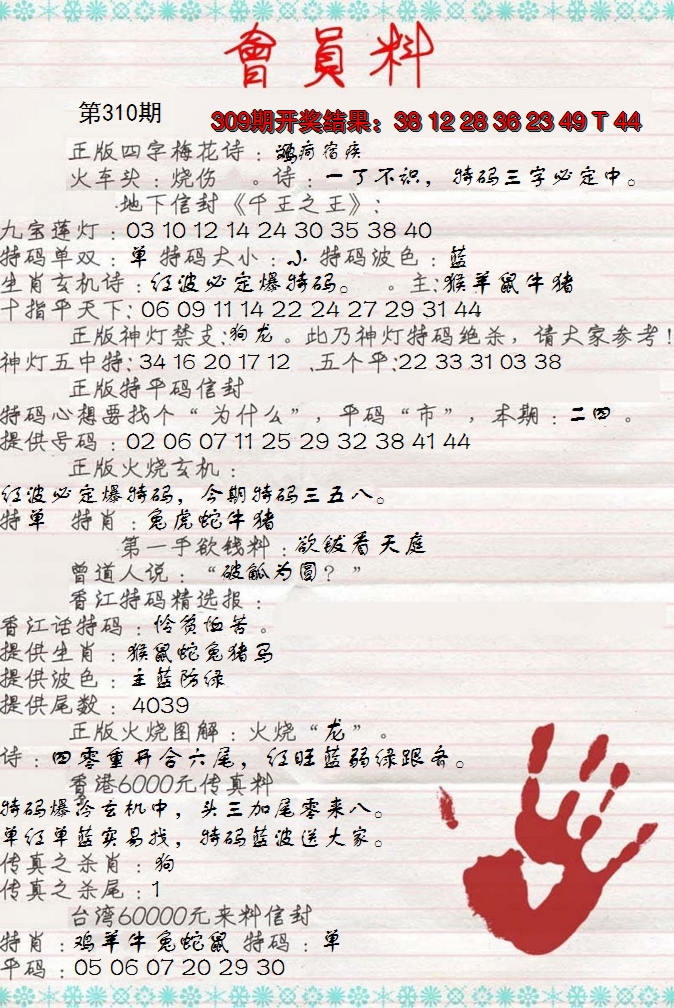 會員料
第310期
309期开奖结果：38 12 28 36 23 49 T 44
正版四字梅花诗：沉疴宿疾
火车头：烧伤 。诗：一了不识，特码三字必定中。
地下信封《千王之王》：
九宝莲灯：03 10 12 14 24 30 35 38 40
特码单双：单 特码大小：小 特码波色：蓝
生肖玄机诗：红波必定爆特码。 。主：猴羊鼠牛猪
十指平天下：06 09 11 14 22 24 27 29 31 44
正版神灯禁支：狗龙。此乃神灯特码绝杀，请大家参考！
神灯五中特：34 16 20 17 12 、五个平：22 33 31 03 38
正版特平码信封
特码心想要找个“为什么”，平码“市”，本期：二四。
提供号码：02 06 07 11 25 29 32 38 41 44
正版火烧玄机：
红波必定爆特码，今期特码三五八。
特单 特肖：兔虎蛇牛猪
第一手欲钱料：欲钱看天庭
曾道人说：“破觚为圆？”
香江特码精选报：
香江话特码：怜贫恤苦。
提供生肖：猴鼠蛇兔猪马
提供波色：主蓝防绿
提供尾数：4039
正版火烧图解：火烧“龙”。
诗：四零重开合六尾，红旺蓝弱绿跟着。
香港6000元传真料
特码爆冷玄机中，头三加尾零来八。
单红单蓝实易找，特码蓝波送大家。
传真之杀肖：狗
传真之杀尾：1
台湾60000元来料信封
特肖：鸡羊牛兔蛇鼠 特码：单
平码：05 06 07 20 29 30